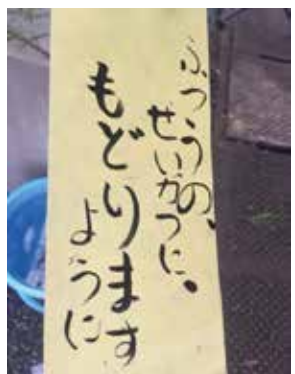 ふつうの、
せいかつに。
もどります
ように